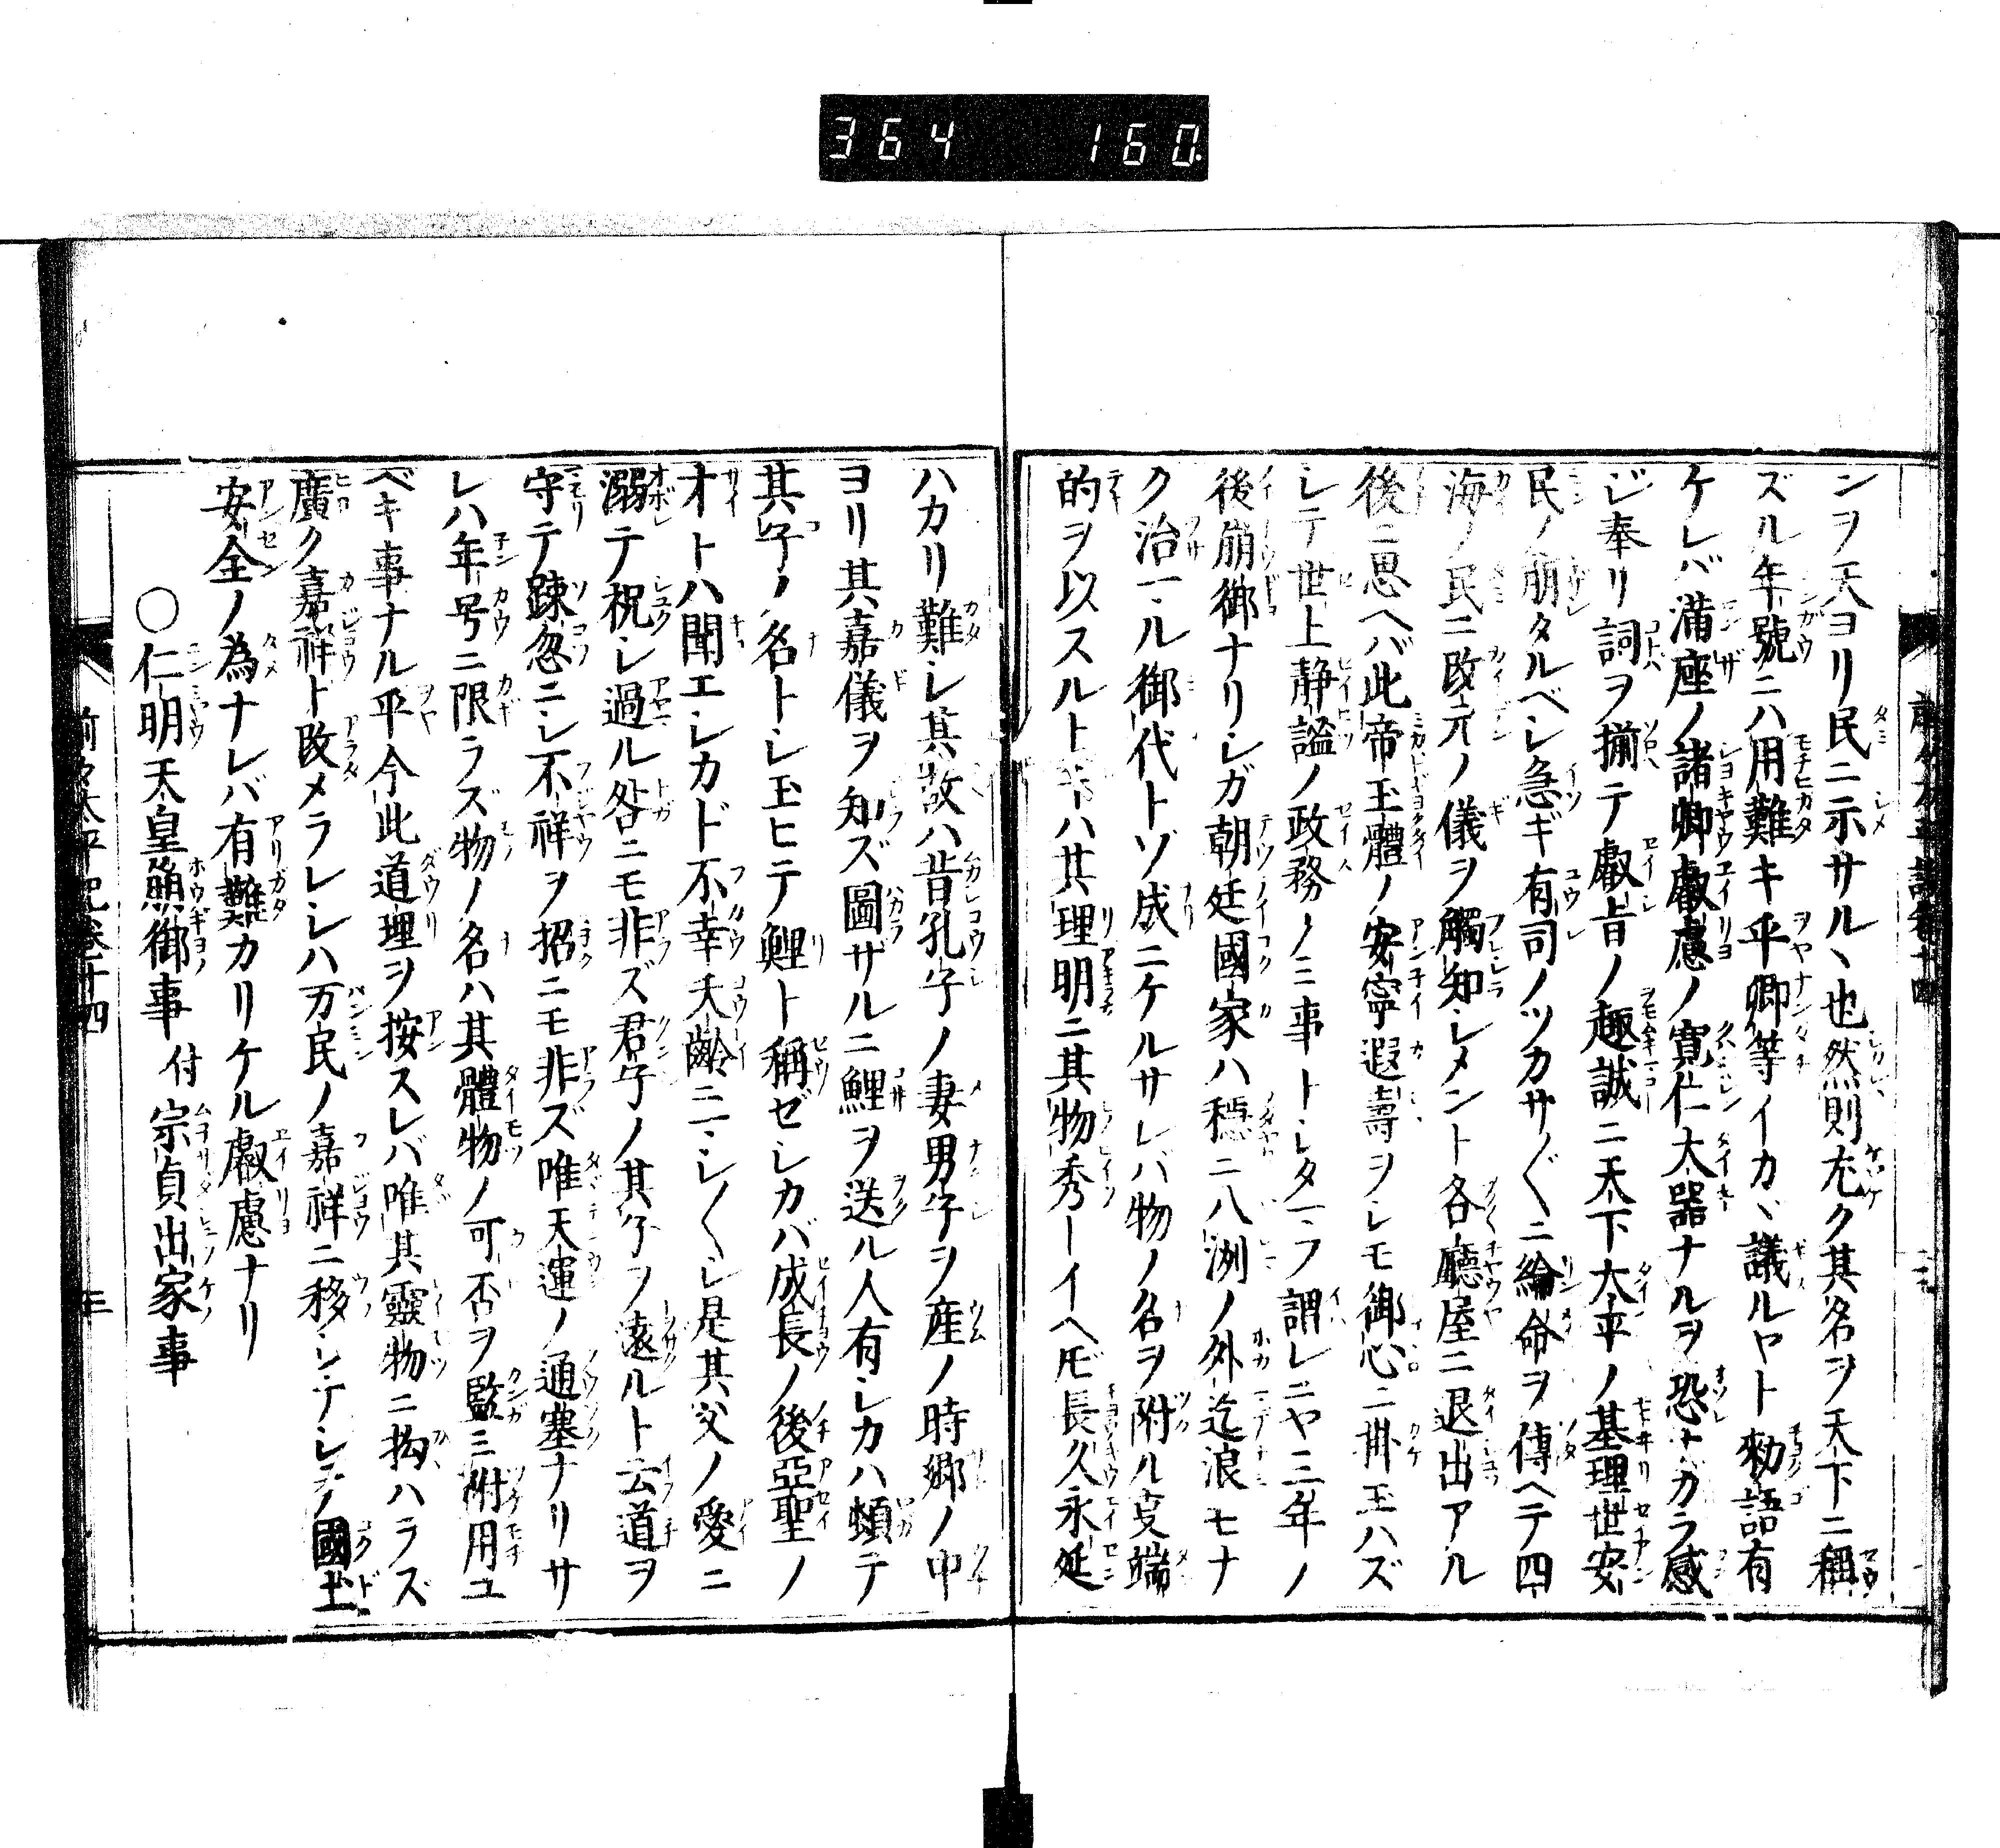 364 160
ンヲ天ヨリ民ニ示サルヽ也然則充ク其名ヲ天下ニ稱
ズル年號ニハ用難キ平卿等イカヽ議ルヤト勅語有
ケレバ滿座ノ諸卿叡慮ノ寛仁大器ナルヲ恐ナガラ感
ジ奉リ詞ヲ揃テ叡旨ノ趣誠ニ天下太平ノ基理世安
民ノ崩タルベシ急ギ有司ノツカサ〴〵ニ綸命ヲ傳ヘテ四
海ノ民ニ改元ノ儀ヲ觸知シメント各廳屋ニ退出アル
後ニ思ヘバ此帝玉體ノ安寧遐壽ヲシモ御心ニ掛玉ハズ
シテ世上静謐ノ政務ノミ事トシタマフ謂レニヤ三年ノ
後崩御ナリシガ朝廷國家ハ穏ニ八洲ノ外迄浪モナ
ク治マル御代トゾ成ニケルサレバ物ノ名ヲ附ル叓端
的ヲ以スルトキハ其理明ニ其物秀ーイヘ𪜈長久永延
ハカリ難シ其故ハ昔孔子ノ妻男子ヲ産ノ時郷ノ中
ヨリ其嘉儀ヲ知ズ圖ザルニ鯉ヲ送ル人有シカハ頓テ
其子ノ名トシ玉ヒテ鯉ト稱ゼシカバ成長ノ後亞聖ノ
オトハ聞エシカド不幸夭齢ニシ〳〵シ是其父ノ愛ニ
溺テ祝シ過ル咎ニモ非ズ君子ノ其子ヲ遠ルト云道ヲ
守テ踈忽ニシ不祥ヲ招ニモ非ズ唯天運ノ通塞ナリサ
レハ年号ニ限ラズ物ノ名ハ其體物ノ可否ヲ監ミ附用ユ
ベキ事ナル平今此道理ヲ按スレバ唯其靈物ニ拘ハラズ
廣ク嘉祥ト改メラレシハ万民ノ嘉祥ニ移シテシテノ國土
安全ノ為ナレバ有難カリケル叡慮ナリ
○仁明天皇崩御事 付 宗貞出家事
前々太平記卷十四